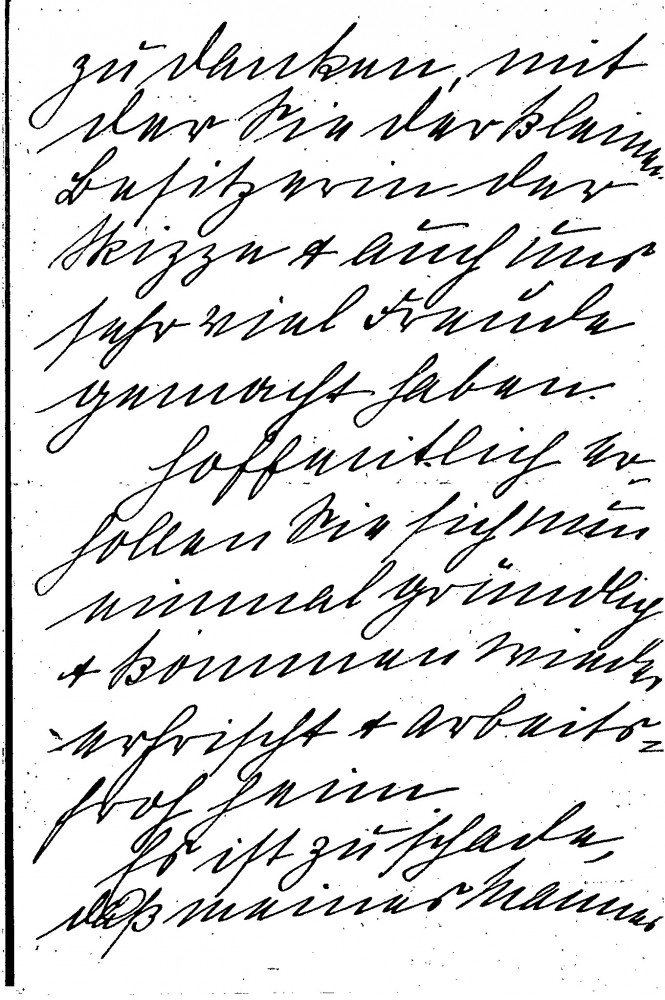 zu danken, mit
der Sie der kleinen
Besitzerin der
Skizze + auch uns
sehr viel Freude
gemacht haben.
Hoffentlich er-
holen Sie sich nun
einmal gründlich
+ kommen wieder
erfrischt + arbeits-
froh heim.
Es ist zu schade,
daß meines Mannes